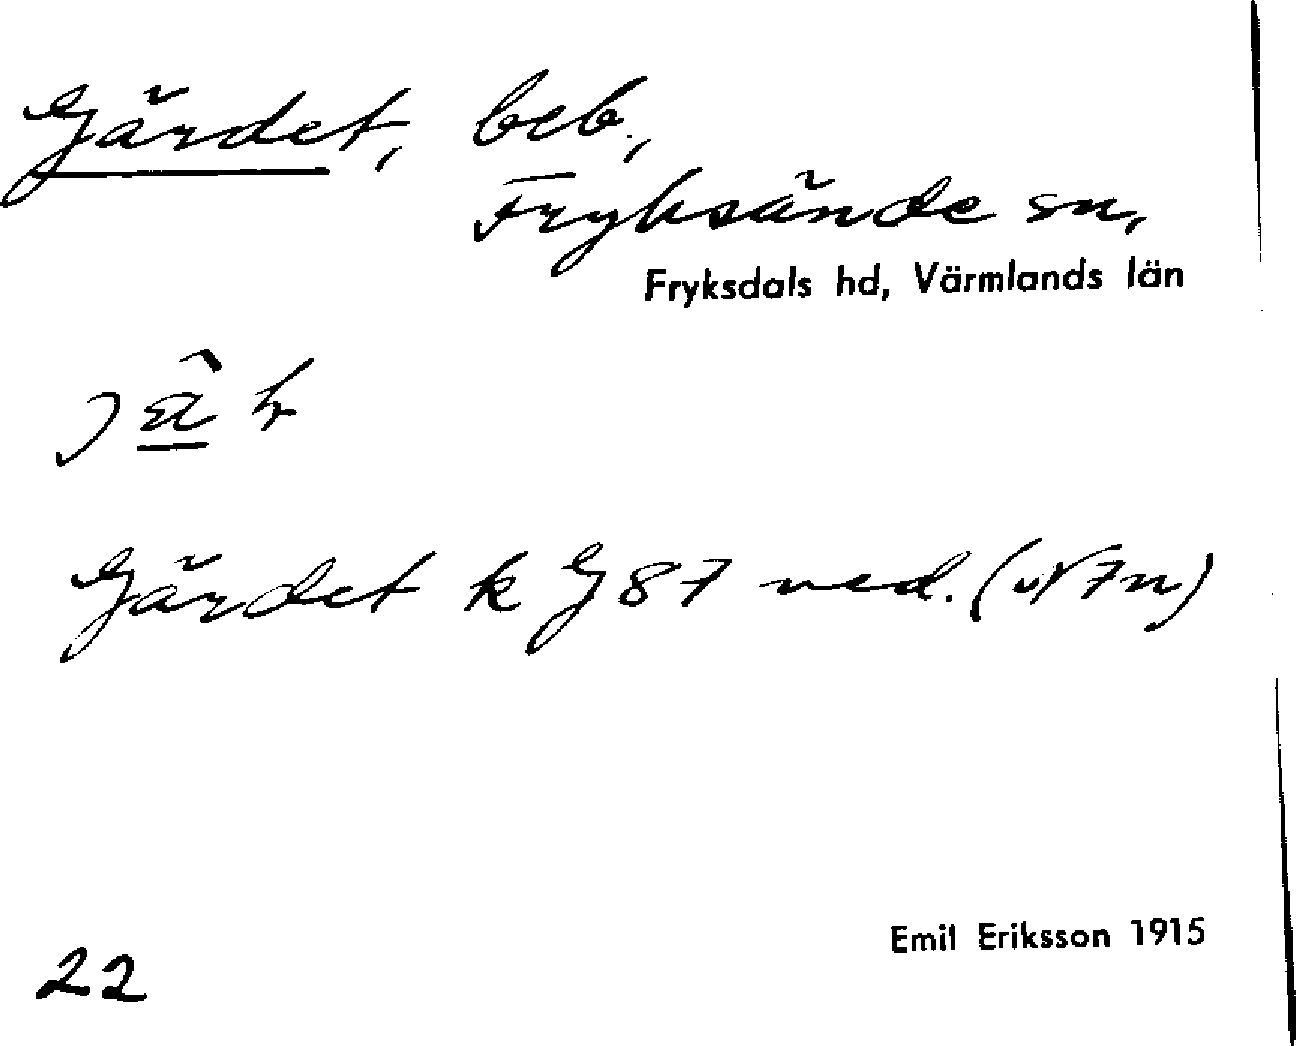 Gärdet, beb.,
Fryksände sn,
Fryksdals hd, Värmlands län
Gärdet k G 87 ned.
Emil Eriksson 1915
22